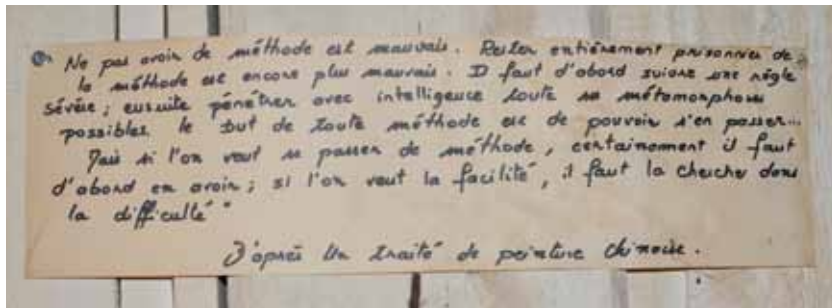 " Ne pas avoir de méthode est mauvais. Rester entièrement prisonnier de
la méthode est encore plus mauvais. Il faut d'abord suivre une règle
sévère ; ensuite pénétrer avec intelligence toute sa métamorphose
possibles le but de toute méthode est de pouvoir s'en passer...
Mais si l'on veut se passer de méthode, certainement il faut
d'abord en avoir ; si l'on veut la facilité, il faut la chercher dans
la difficulté "
D'après Un traité de peinture chinoise.